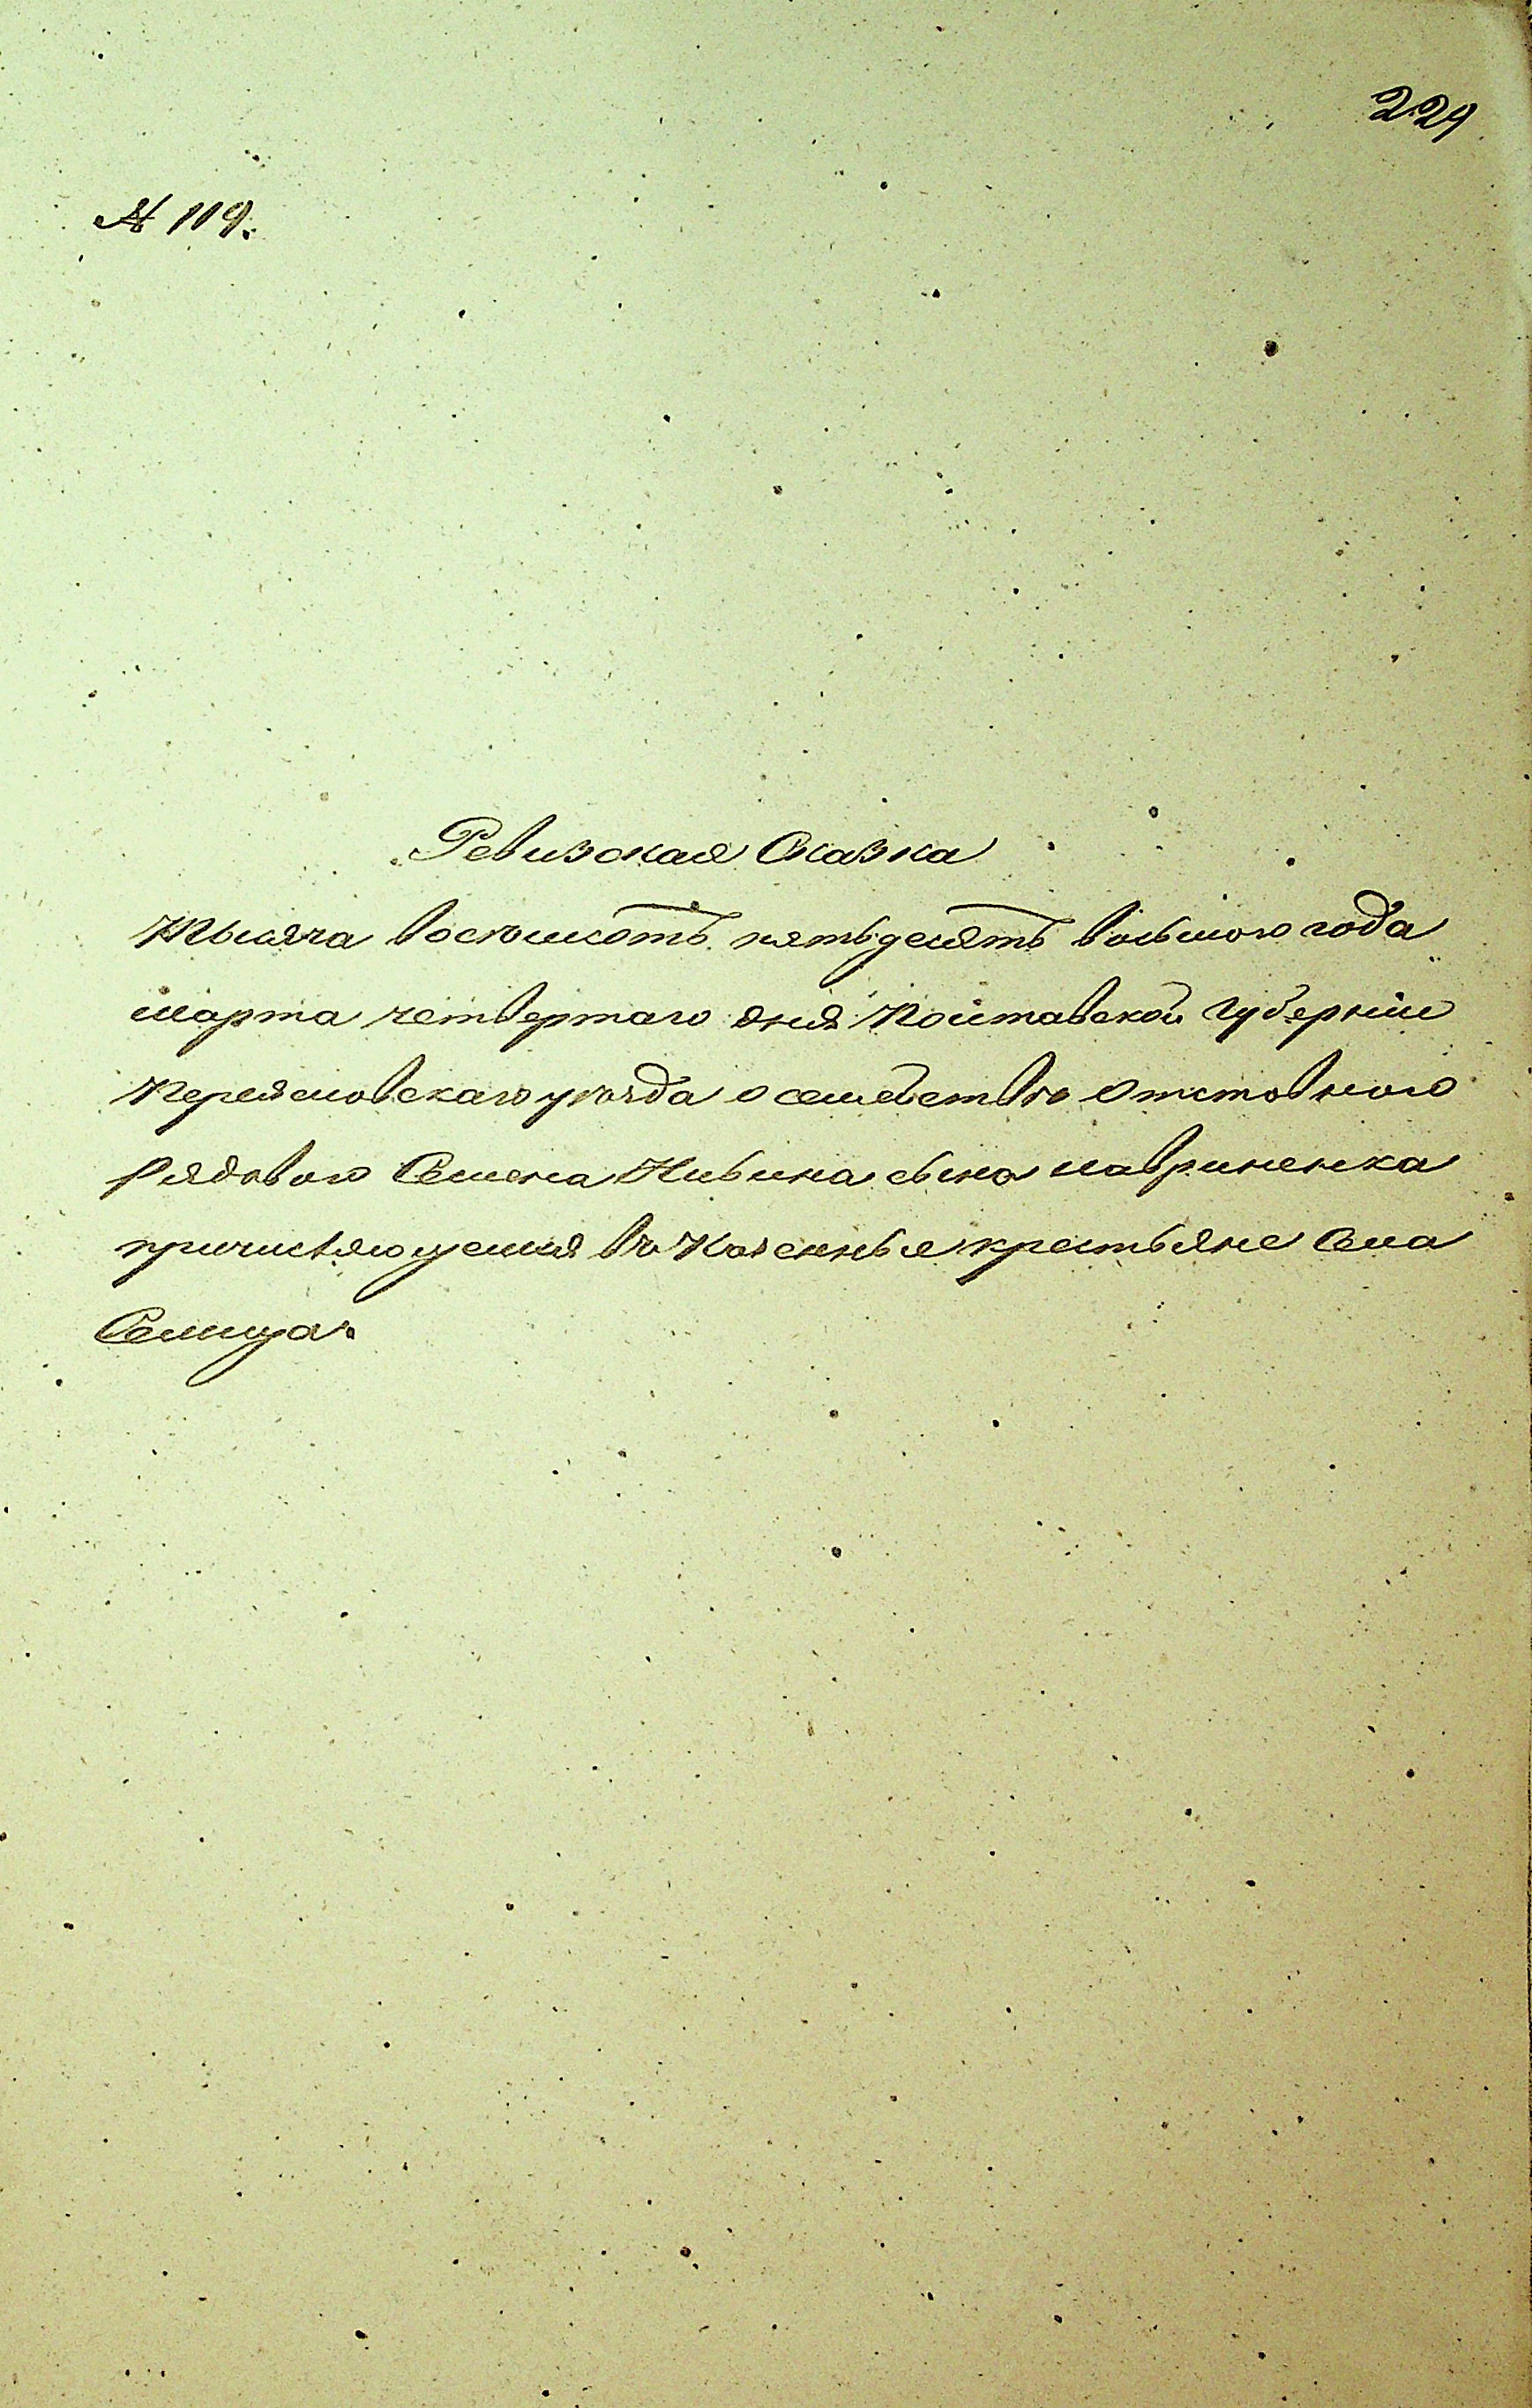 229
№ 119.
Ревизская Сказка
Тысяча восемьсотъ пятьдесятъ восьмого года
марта четвертаго дня Полтавской Губерніи
Переяславскаго уѣзда о семействѣ Отставного
Рядового Семена сына Лавриненка
причисляющемся въ Казенные крестьяне Села
Селища.